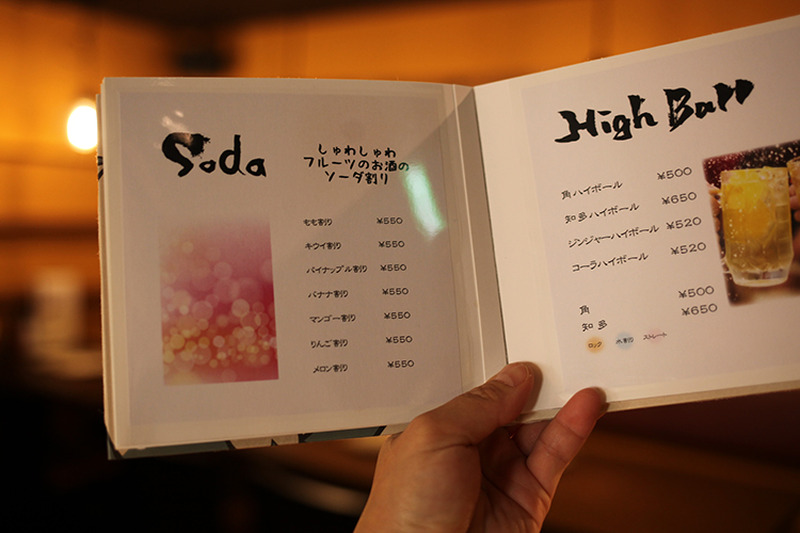 Soda
しゅわしゅわ
フルーツのお酒の
ソーダ割り
もも割り ¥550
キウイ割り ¥550
パイナップル割り ¥550
バナナ割り ¥550
マンゴー割り ¥550
りんご割り ¥550
メロン割り ¥550
High Ball
角ハイボール ¥500
知多ハイボール ¥650
ジンジャーハイボール ¥520
コーラハイボール ¥520
角 ¥500
知多 ¥650
ロック 水割り ストレート